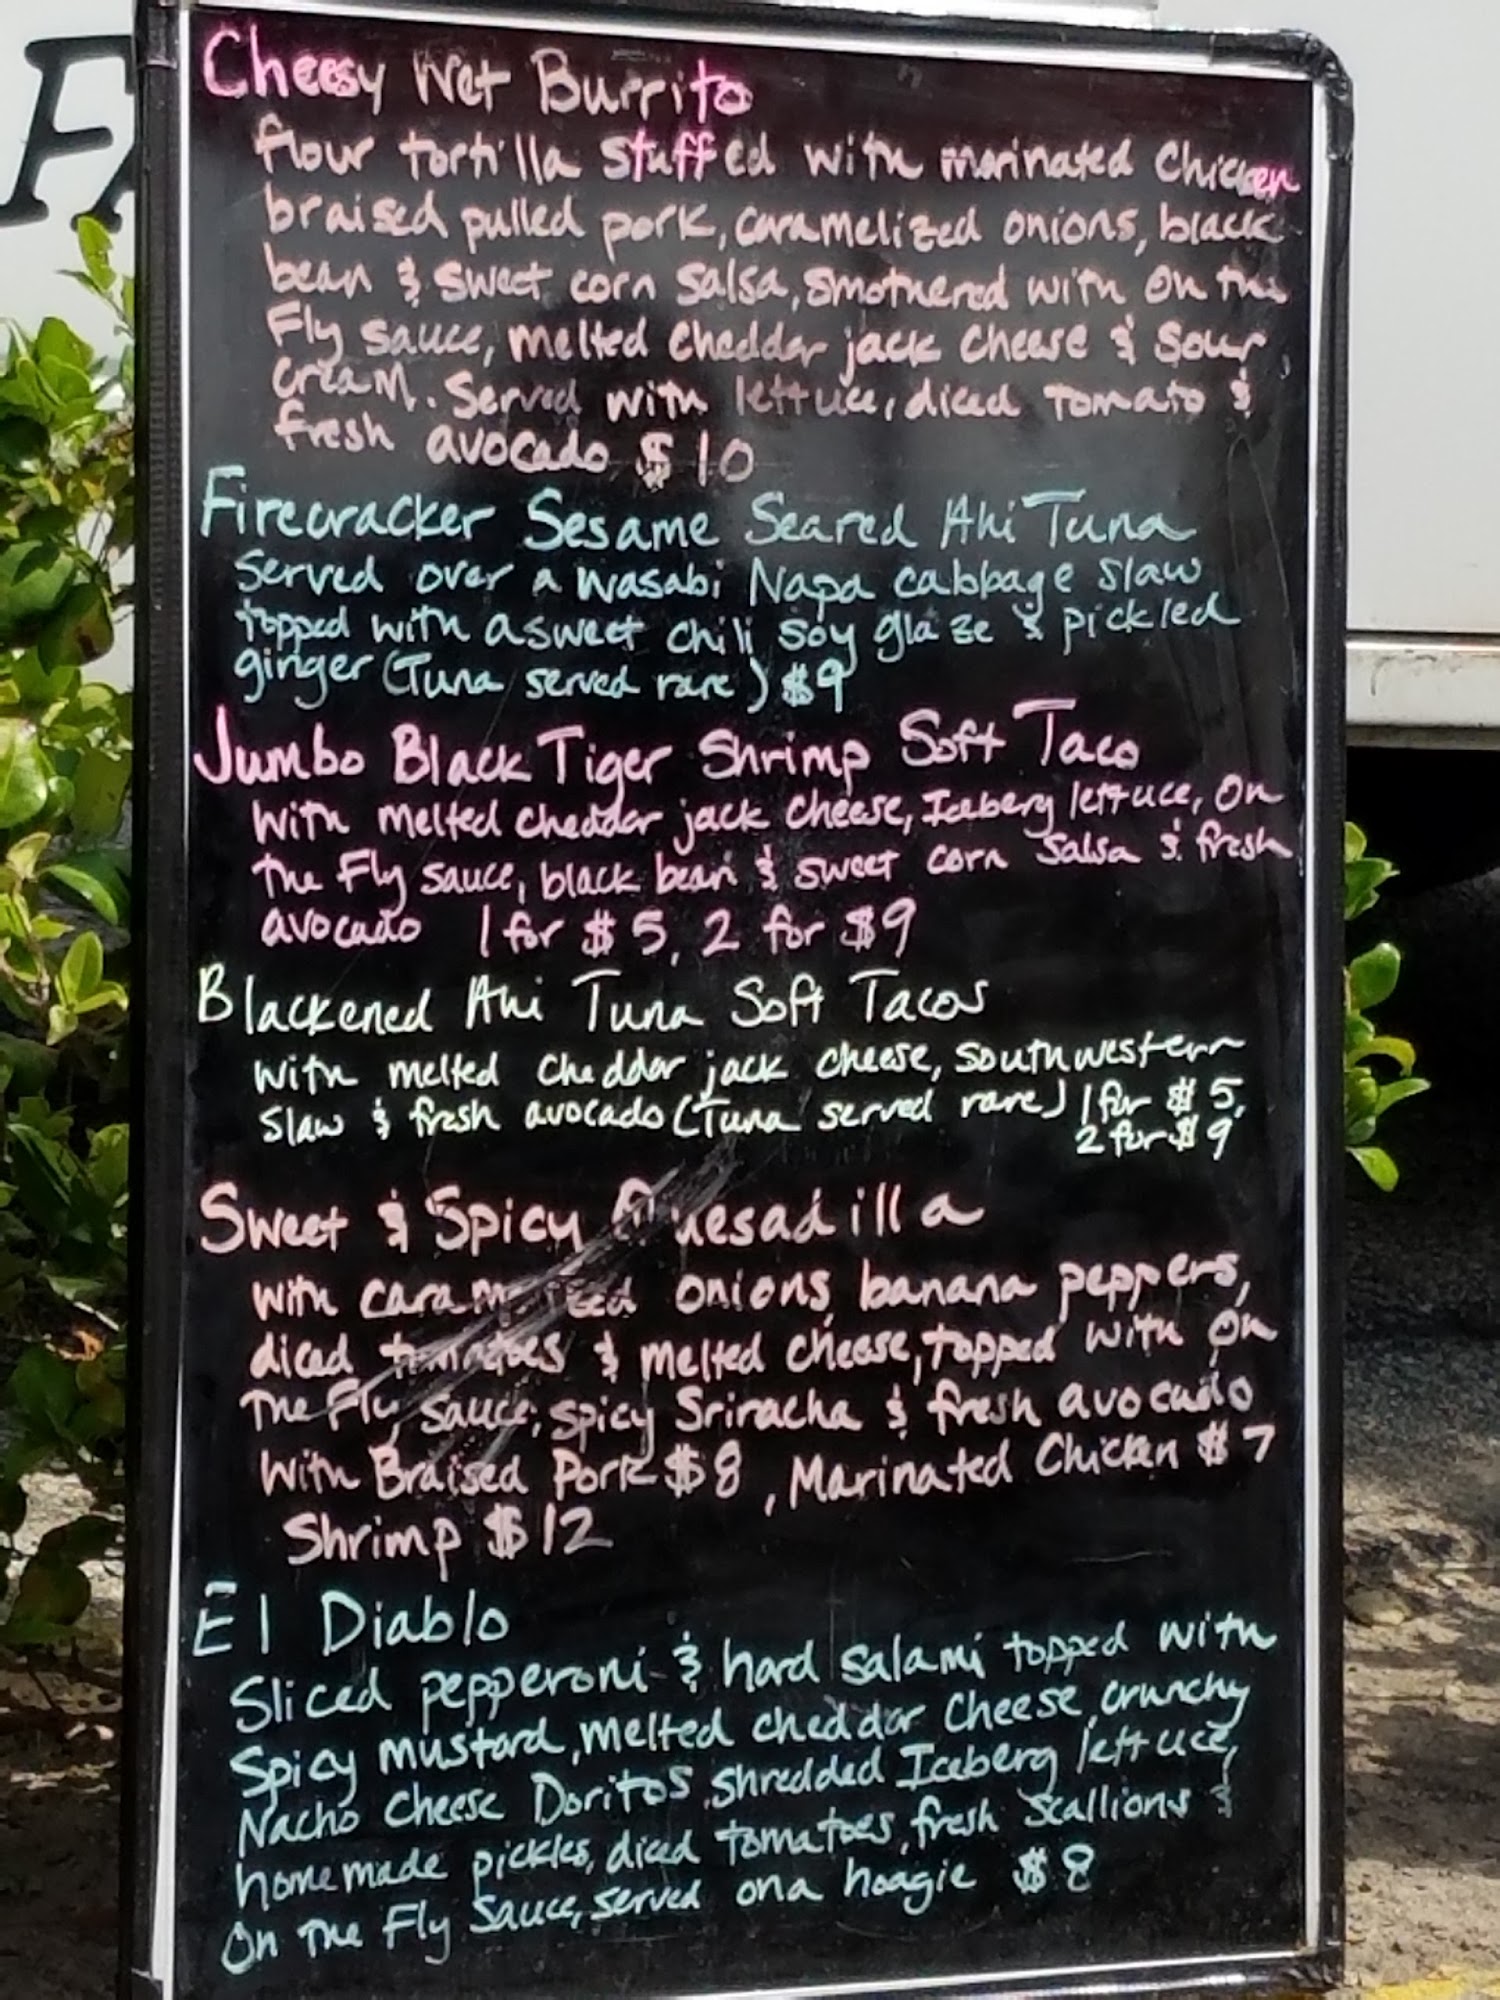 FA
Cheesy Wet Burrito
flour tortilla stuffed with marinated Chicken
braised pulled pork, caramelized onions, black
bean & sweet corn salsa, smothered with on the
Fly sauce, melted cheddar jack cheese & sour
cream. Served with lettuce, diced tomato &
fresh avocado $10
Firecracker Sesame Seared Ahi Tuna
Served over a wasabi Napa cabbage slaw
topped with a sweet chili soy glaze & pickled
ginger (Tuna served rare) $9
Jumbo Black Tiger Shrimp Soft Taco
with melted cheddar jack cheese, Iceberg lettuce, On
the Fly sauce, black bean & sweet corn salsa & fresh
avocado 1 for $5, 2 for $9
Blackened Ahi Tuna Soft Tacos
with melted cheddar jack cheese, southwestern
slaw & fresh avocado (Tuna served rare) 1 for $5,
2 for $9
Sweet & Spicy Quesadilla
with caramelized onions, banana peppers,
diced tomatoes & melted cheese, topped with On
The Fly sauce, spicy Sriracha & fresh avocado
with Braised Pork $8, Marinated Chicken $7
Shrimp $12
El Diablo
Sliced pepperoni & hard salami topped with
spicy mustard, melted cheddar cheese, crunchy
Nacho cheese Doritos, shredded Iceberg lettuce,
homemade pickles, diced tomatoes, fresh scallions &
On The Fly Sauce, served on a hoagie $8